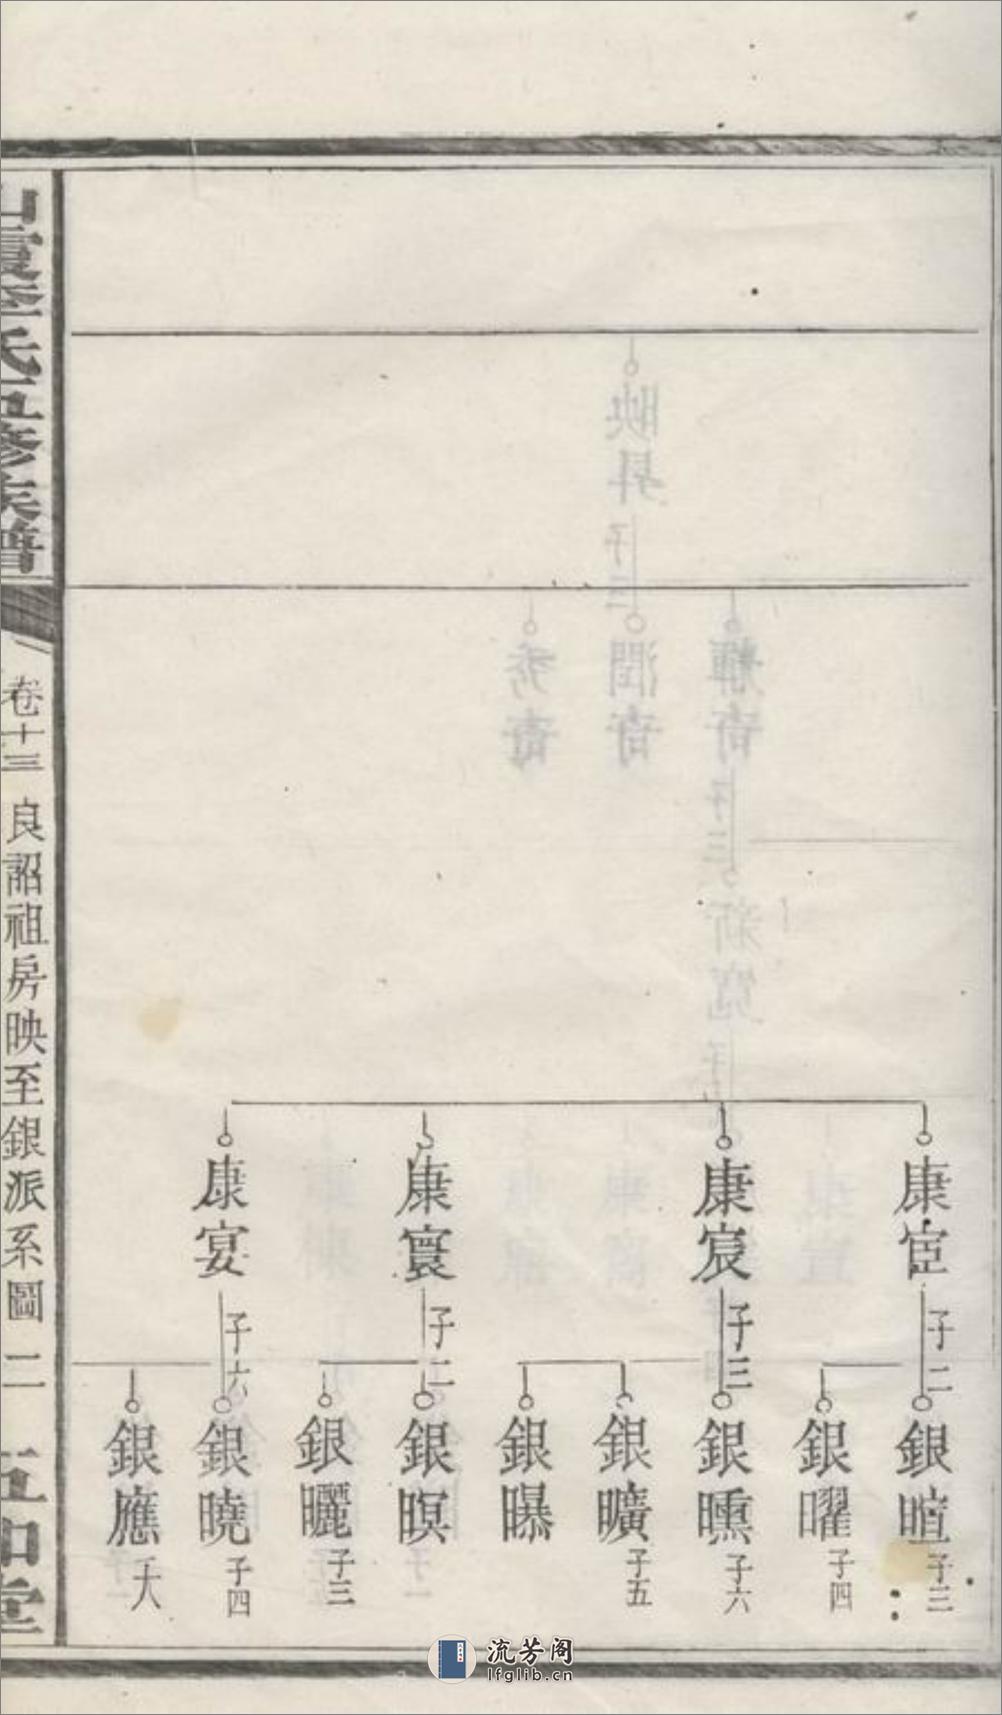 康宧 子二
康宸 子三
康寰 子二
康宴 子六
銀暄 子三
銀曜 子四
銀曛 子六
銀曠 子五
銀曝
銀暝
銀曬 子三
銀曉 子四
銀應
氏五修族譜
卷十三 良詔祖房映至銀派系圖 二 五和堂
流芳阁
lfglib.cn